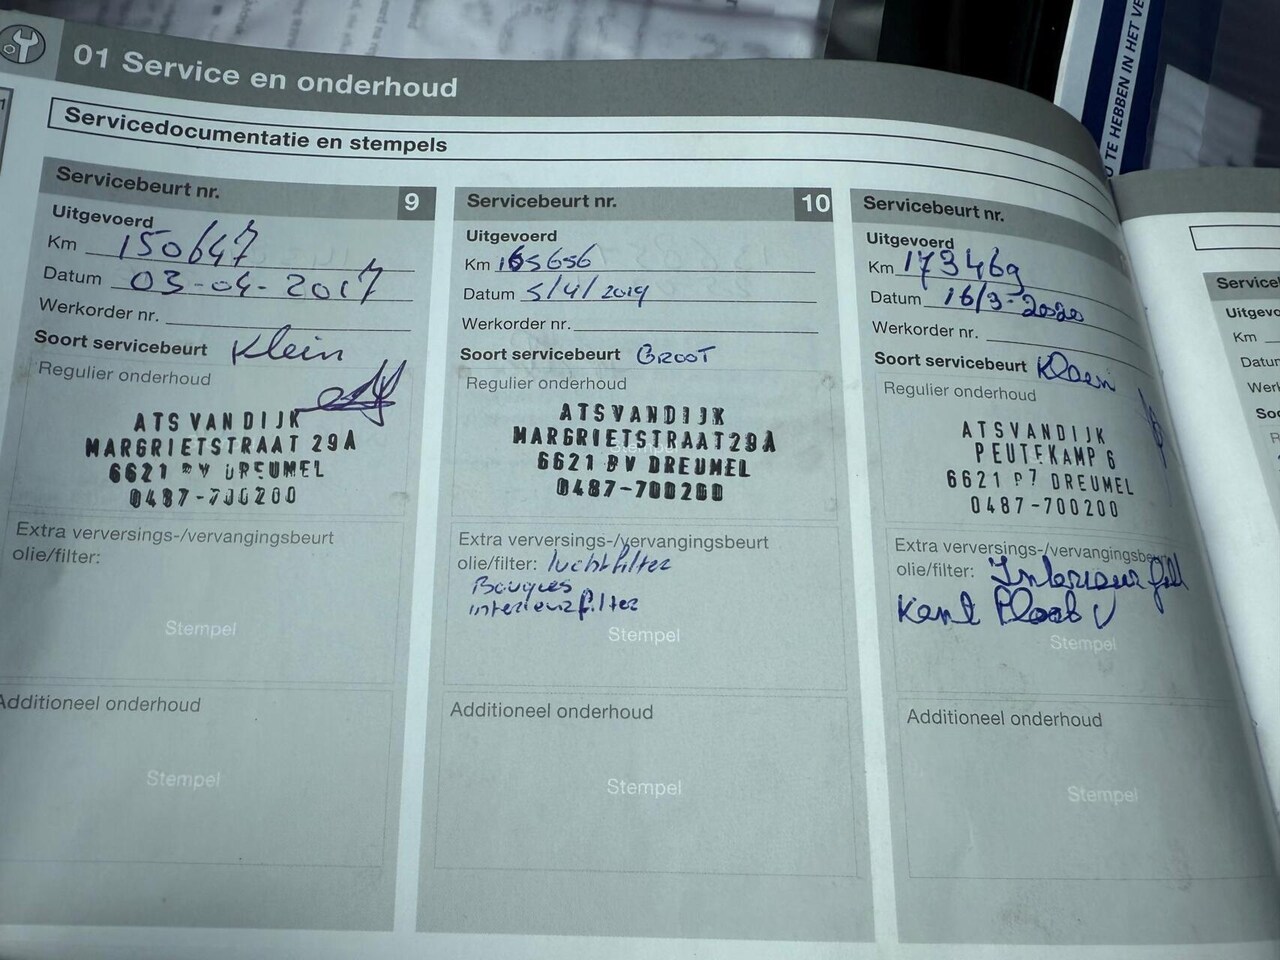 01 Service en onderhoud
Servicedocumentatie en stempels
Servicebeurt nr. 9
Uitgevoerd
Km 150647
Datum 03-04-2017
Werkorder nr.
Soort servicebeurt Klein
Regulier onderhoud
ATS VAN DIJK
MARGRIETSTRAAT 29A
6621 BV DREUMEL
0487-700200
Extra verversings-/vervangingsbeurt
olie/filter:
Stempel
Additioneel onderhoud
Stempel
Servicebeurt nr. 10
Uitgevoerd
Km 165656
Datum 5/4/2019
Werkorder nr.
Soort servicebeurt GROOT
Regulier onderhoud
Stempel
ATSVANDIJK
MARGRIETSTRAAT29A
6621 BV DREUMEL
0487-700200
Extra verversings-/vervangingsbeurt
olie/filter: luchtfilter
Bougies
interieurfilter
Stempel
Additioneel onderhoud
Stempel
Servicebeurt nr.
Uitgevoerd
Km 173469
Datum 16/3-2020
Werkorder nr.
Soort servicebeurt Klein
Regulier onderhoud
ATSVANDIJK
PEUTEKAMP 6
6621 PZ DREUMEL
0487-700200
Extra verversings-/vervangingsbeurt
olie/filter: Interieur fill
Stempel
Additioneel onderhoud
Stempel
TE HEBBEN IN HET VE
Service
Uitgevo
Km
Datum
Werk
Soo